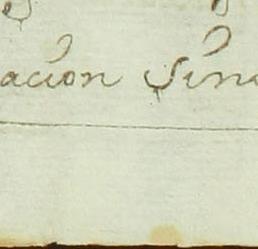 acion Sin